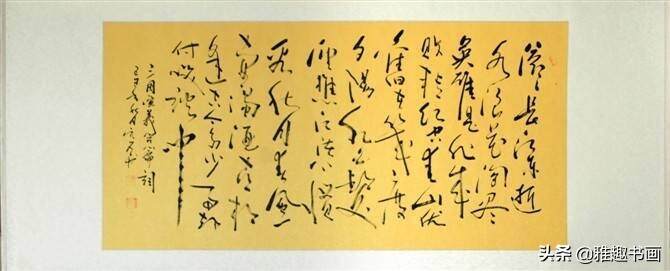 滚滚长江东逝
水浪花淘尽
英雄是非成
败转头空青山依
旧在几度
夕阳红白发
渔樵江渚上惯
看秋月春风
一壶浊酒喜相
逢古今多少事都
付笑谈中
三国演义开篇词
头条 @雅趣书画